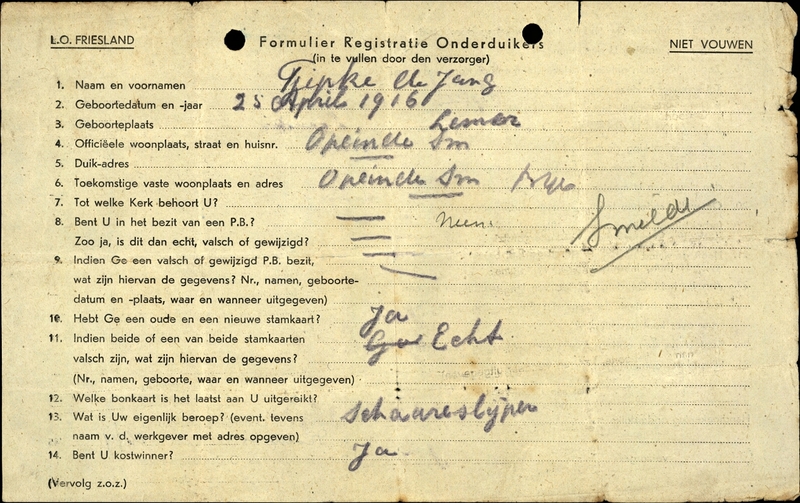 L.O. FRIESLAND
Formulier Registratie Onderduikers
NIET VOUWEN
(in te vullen door den verzorger)
1. Naam en voornamen Tjipke de Jong
2. Geboortedatum en -jaar 25 April 1916
3. Geboorteplaats Lemmer
4. Officiëele woonplaats, straat en huisnr. Opeinde Sm
5. Duik-adres
6. Toekomstige vaste woonplaats en adres Opeinde Sm
7. Tot welke Kerk behoort U?
8. Bent U in het bezit van een P.B.? — Neen
Smilde
Zoo ja, is dit dan echt, valsch of gewijzigd? —
9. Indien Ge een valsch of gewijzigd P.B. bezit, —
wat zijn hiervan de gegevens? Nr., namen, geboorte- —
datum en -plaats, waar en wanneer uitgegeven)
10. Hebt Ge een oude en een nieuwe stamkaart? Ja
11. Indien beide of een van beide stamkaarten Echt
valsch zijn, wat zijn hiervan de gegevens?
(Nr., namen, geboorte, waar en wanneer uitgegeven)
12. Welke bonkaart is het laatst aan U uitgereikt?
13. Wat is Uw eigenlijk beroep? (event. tevens schaareslijper
naam v. d. werkgever met adres opgeven)
14. Bent U kostwinner? Ja.
(Vervolg z.o.z.)